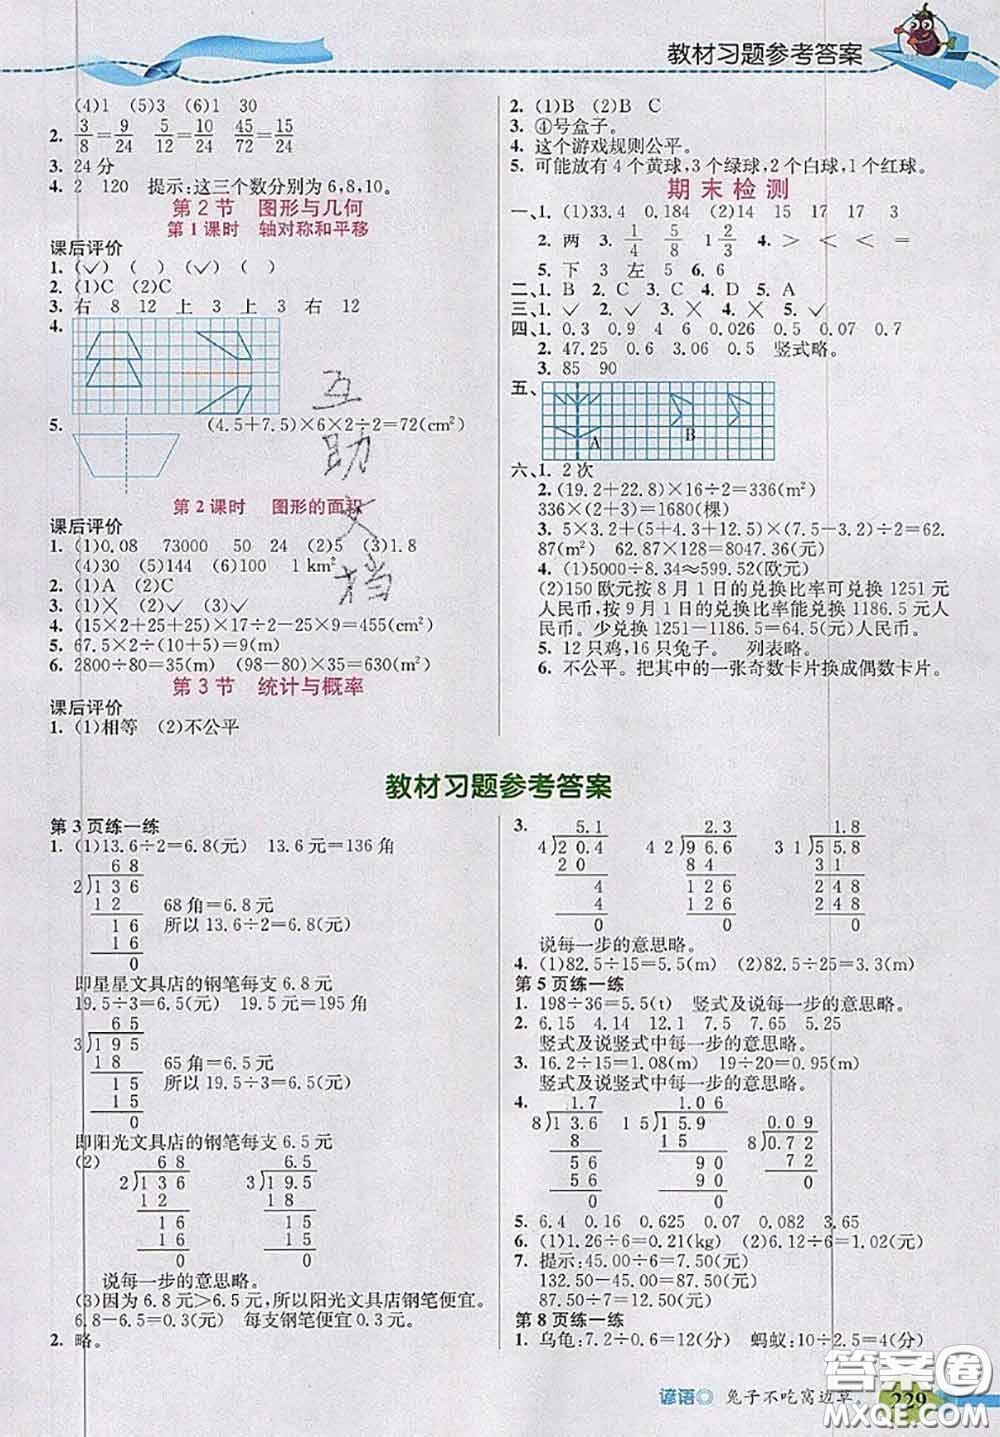 教材习题参考答案
(4)1 (5)3 (6)1 30
2. 3/8=9/24 5/12=10/24 45/72=15/24
3. 24分
4. 2 120 提示:这三个数分别为6,8,10。
第2节 图形与几何
第1课时 轴对称和平移
课后评价
1. (✓) ( ) (✓) ( )
2. (1)C (2)C
3. 右 8 12 上 3 上 3 右 12
4.
5. (4.5+7.5)×6×2÷2=72(cm²)
第2课时 图形的面积
课后评价
1. (1)0.08 73000 50 24 (2)5 (3)1.8
(4)30 (5)144 (6)100 1 km²
2. (1)A (2)C
3. (1)× (2)✓ (3)✓
4. (15×2+25+25)×17÷2-25×9=455(cm²)
5. 67.5×2÷(10+5)=9(m)
6. 2800÷80=35(m) (98-80)×35=630(m²)
第3节 统计与概率
课后评价
1. (1)相等 (2)不公平
2. (1)B (2)B C
3. ④号盒子。
4. 这个游戏规则公平。
5. 可能放有4个黄球,3个绿球,2个白球,1个红球。
期末检测
一、1. (1)33.4 0.184 (2)14 15 17 17 17
2. 两 3. 1/4 5/8 1 2/3 4. > < < =
5. 下 3 左 5 6. 6
二、1. B 2. B 3. C 4. D 5. A
三、1. ✓ 2. ✓ 3. × 4. × 5. ✓
四、1. 0.3 0.9 4 6 0.026 0.5 0.07 0.7
2. 47.25 0.6 3.06 0.5 竖式略。
3. 85 90
五、
A B
六、1. 2次
2. (19.2+22.8)×16÷2=336(m²)
336×(2+3)=1680(棵)
3. 5×3.2+(5+7.5)×3.2÷2+7.5×(7.5-3.2)÷2=62.
87(m²) 62.87×128=8047.36(元)
4. (1)5000÷8.34≈599.52(欧元)
(2)150欧元按8月1日的兑换比率可兑换1251元
人民币,按9月1日的兑换比率能兑换1186.5元人民
币。少兑换1251-1186.5=64.5(元)人民币。
5. 12只鸡,16只兔子。 列表略。
6. 不公平。把其中的一张奇数卡片换成偶数卡片。
互
助
文
档
教材习题参考答案
第3页练一练
1. (1)13.6÷2=6.8(元) 13.6元=136角
68
2)136
12 68角=6.8元
16 所以13.6÷2=6.8(元)
16
0
即星星文具店的钢笔每支6.8元
19.5÷3=6.5(元) 19.5元=195角
65
3)195
18 65角=6.5元
15 所以19.5÷3=6.5(元)
15
0
即阳光文具店的钢笔每支6.5元
(2) 68 6.5
2)136 3)195
12 18
16 15
16 15
0 0
说每一步的意思略。
(3)因为6.8元>6.5元,所以阳光文具店钢笔便宜。
6.8-6.5=0.3(元) 每支钢笔便宜0.3元。
2. 略。
3. 5.1 2.3 1.8
4)20.4 42)96.6 31)55.8
20 84 31
4 126 248
4 126 248
0 0 0
说每一步的意思略。
4. (1)82.5÷15=5.5(元) (2)82.5÷25=3.3(元)
第5页练一练
1. 198÷36=5.5(t) 竖式及说每一步的意思略。
2. 6.15 4.14 12.1 7.5 7.65 5.25
竖式及说竖式中每一步的意思略。
3. 16.2÷15=1.08(m) 19÷20=0.95(m)
竖式及说竖式中每一步的意思略。
4. 1.7 1.06 0.09
8)13.6 15)15.9 8)0.72
8 15 72
56 90 0
56 90
0 0
5. 6.4 0.16 0.625 0.07 0.082 3.65
6. (1)1.26÷6=0.21(kg) (2)6.12÷6=1.02(元)
7. 提示:45.00÷6=7.50(元)
132.50-45.00=87.50(元)
87.50÷7=12.50(元)
第8页练一练
1. 乌龟:7.2÷0.6=12(分) 蚂蚁:10÷2.5=4(分)
谚语 兔子不吃窝边草
229
答案圈
MXQE.COM